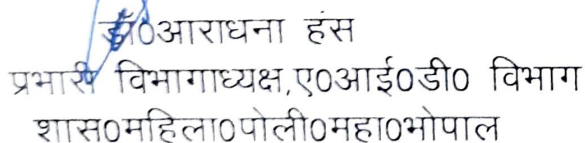 डॉ0आराधना हंस
प्रभारी विभागाध्यक्ष,ए0आई0डी0 विभाग
शास0महिला0पोली0महा0भोपाल